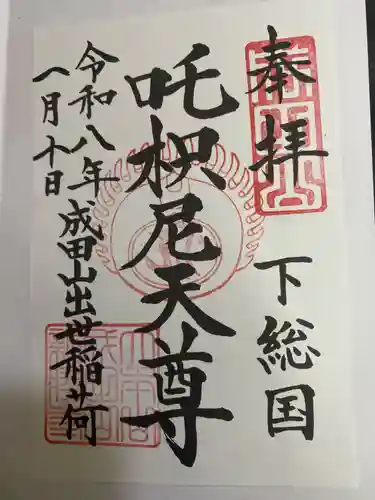 奉拝
下総国
吒枳尼天尊
成田山出世稲荷
令和八年
一月十日